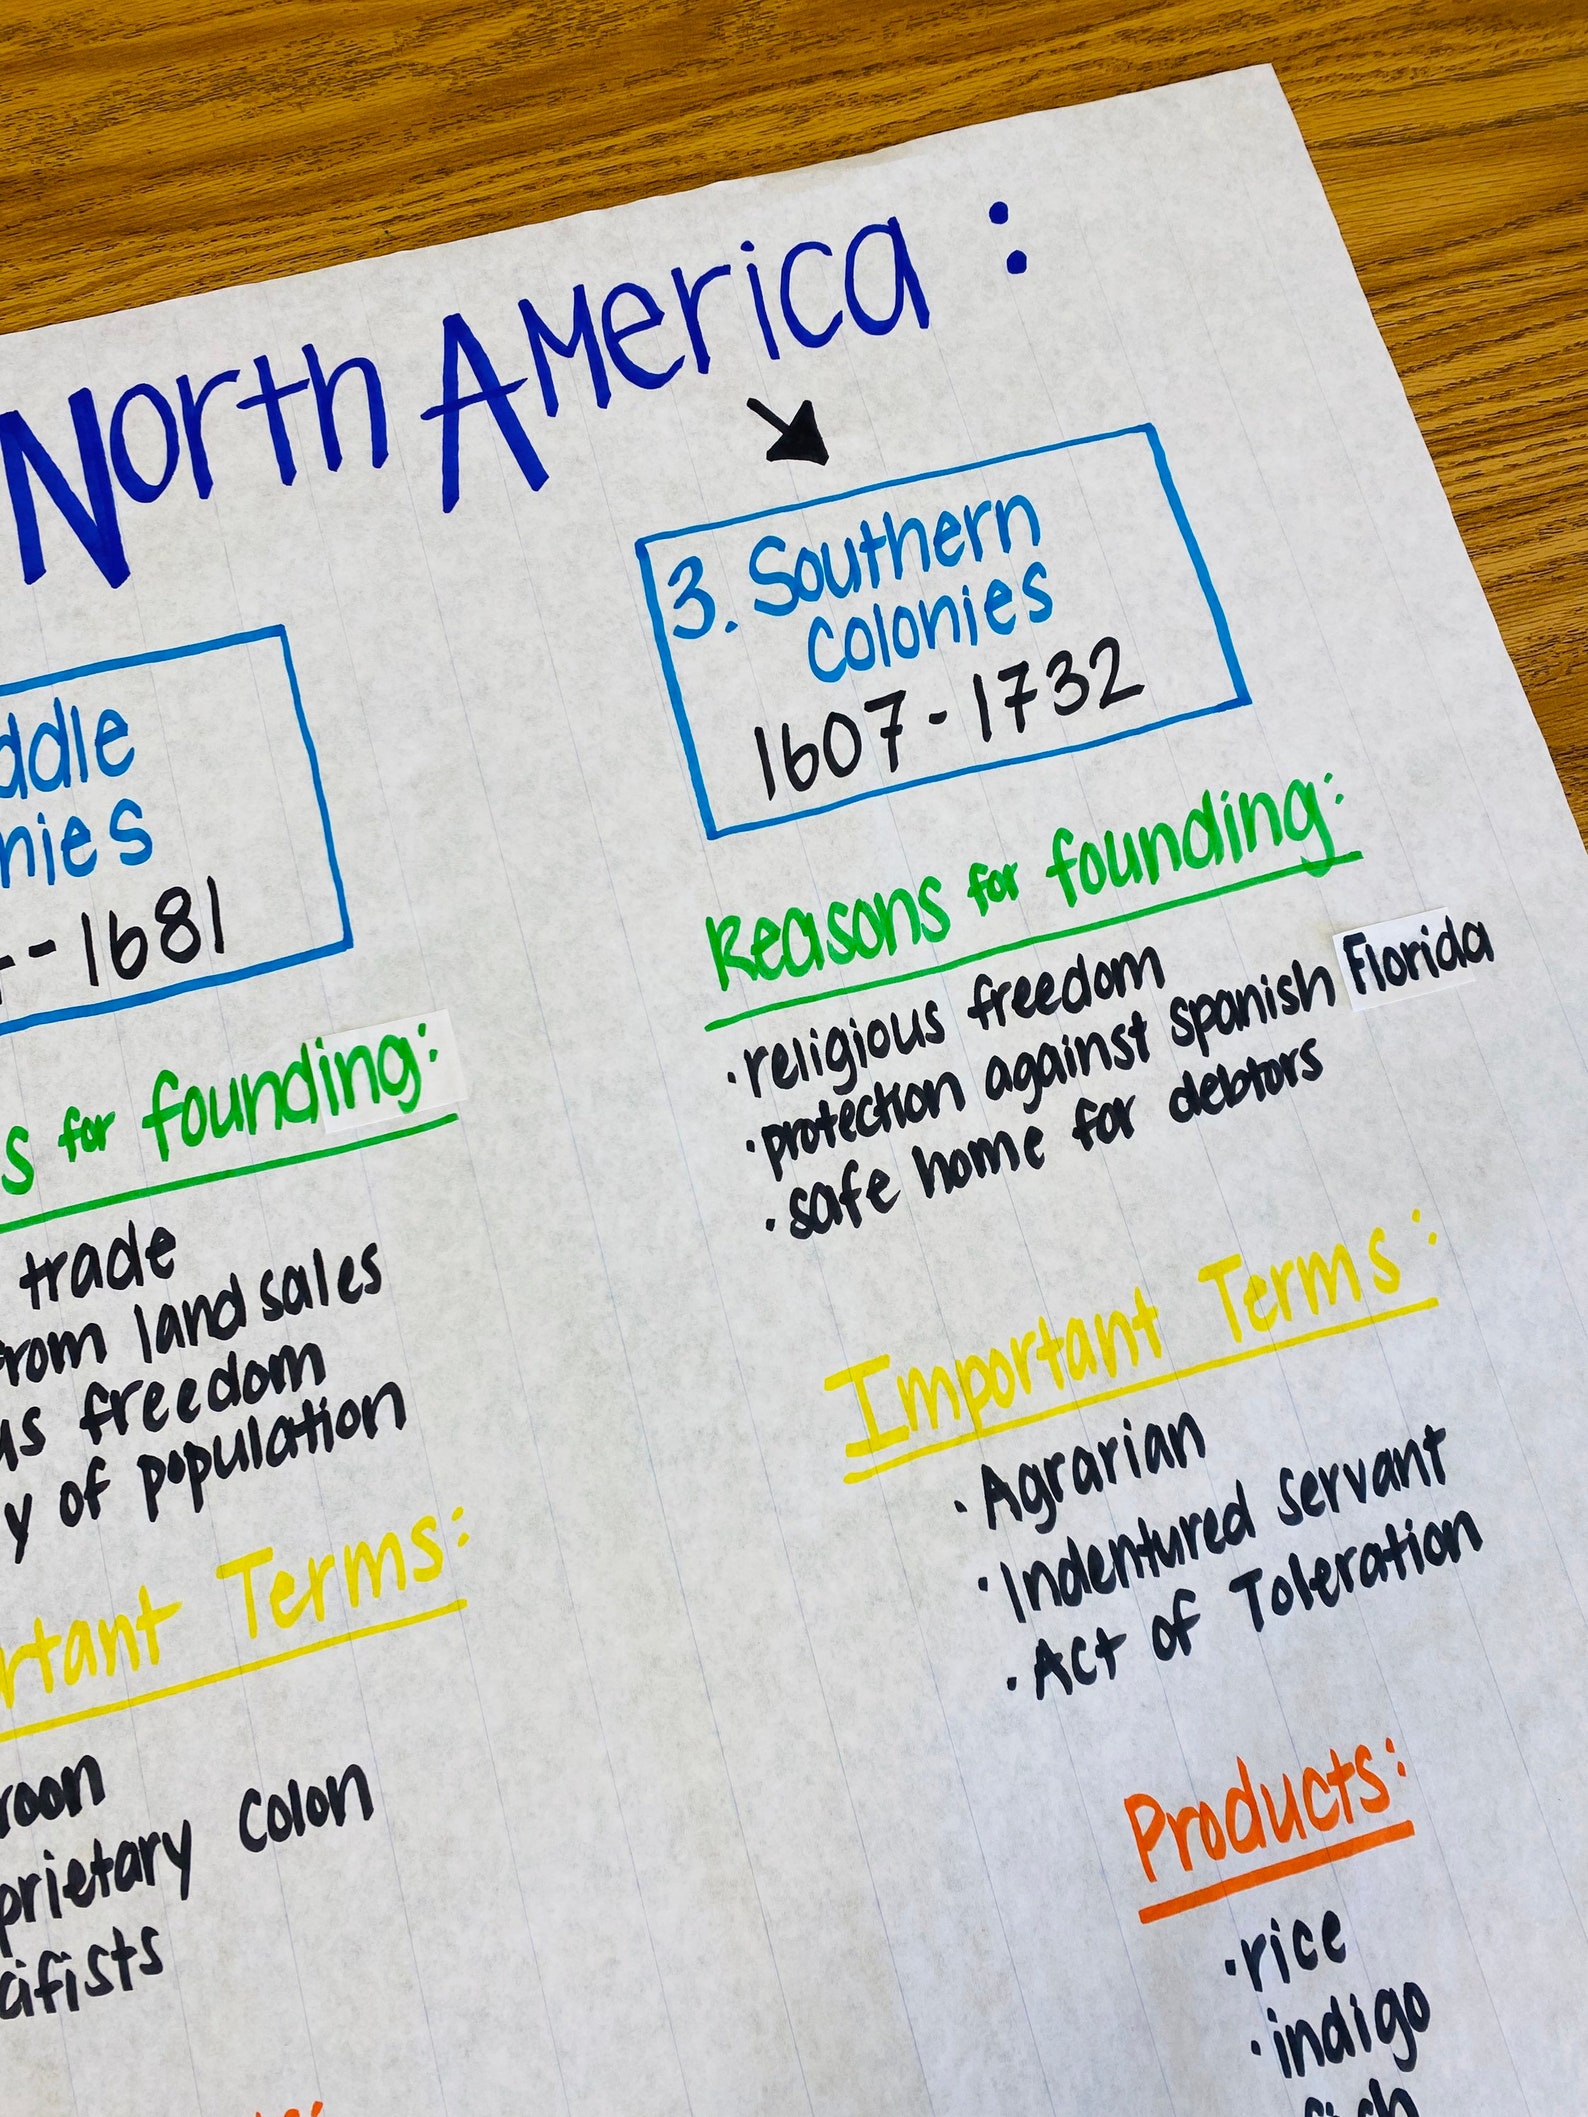 North America :
3. Southern
Colonies
1607-1732
Reasons for founding:
• religious freedom
• protection against spanish Florida
• safe home for debtors
Important Terms :
• Agrarian
• Indentured servant
• Act of Toleration
Products:
• rice
• indigo
ddle
nies
-1681
s for founding:
trade
from land sales
us freedom
y of population
rtant Terms:
roon
prietary Colon
cifists